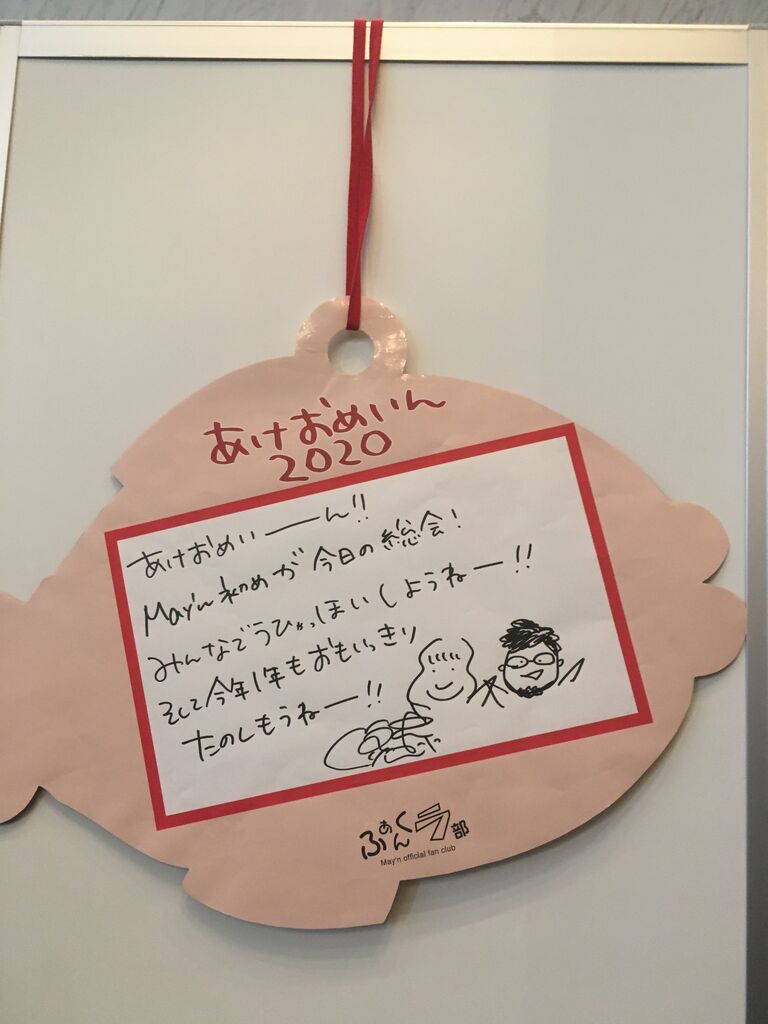 あけおめいん
2020
あけおめいーーん!!
May'n 初めが 今日の総会!
みんなでうひゃっほいしようねー!!
そして今年1年もおもいっきり
たのしもうねー!!
ふぁんくラ部
May'n official fan club